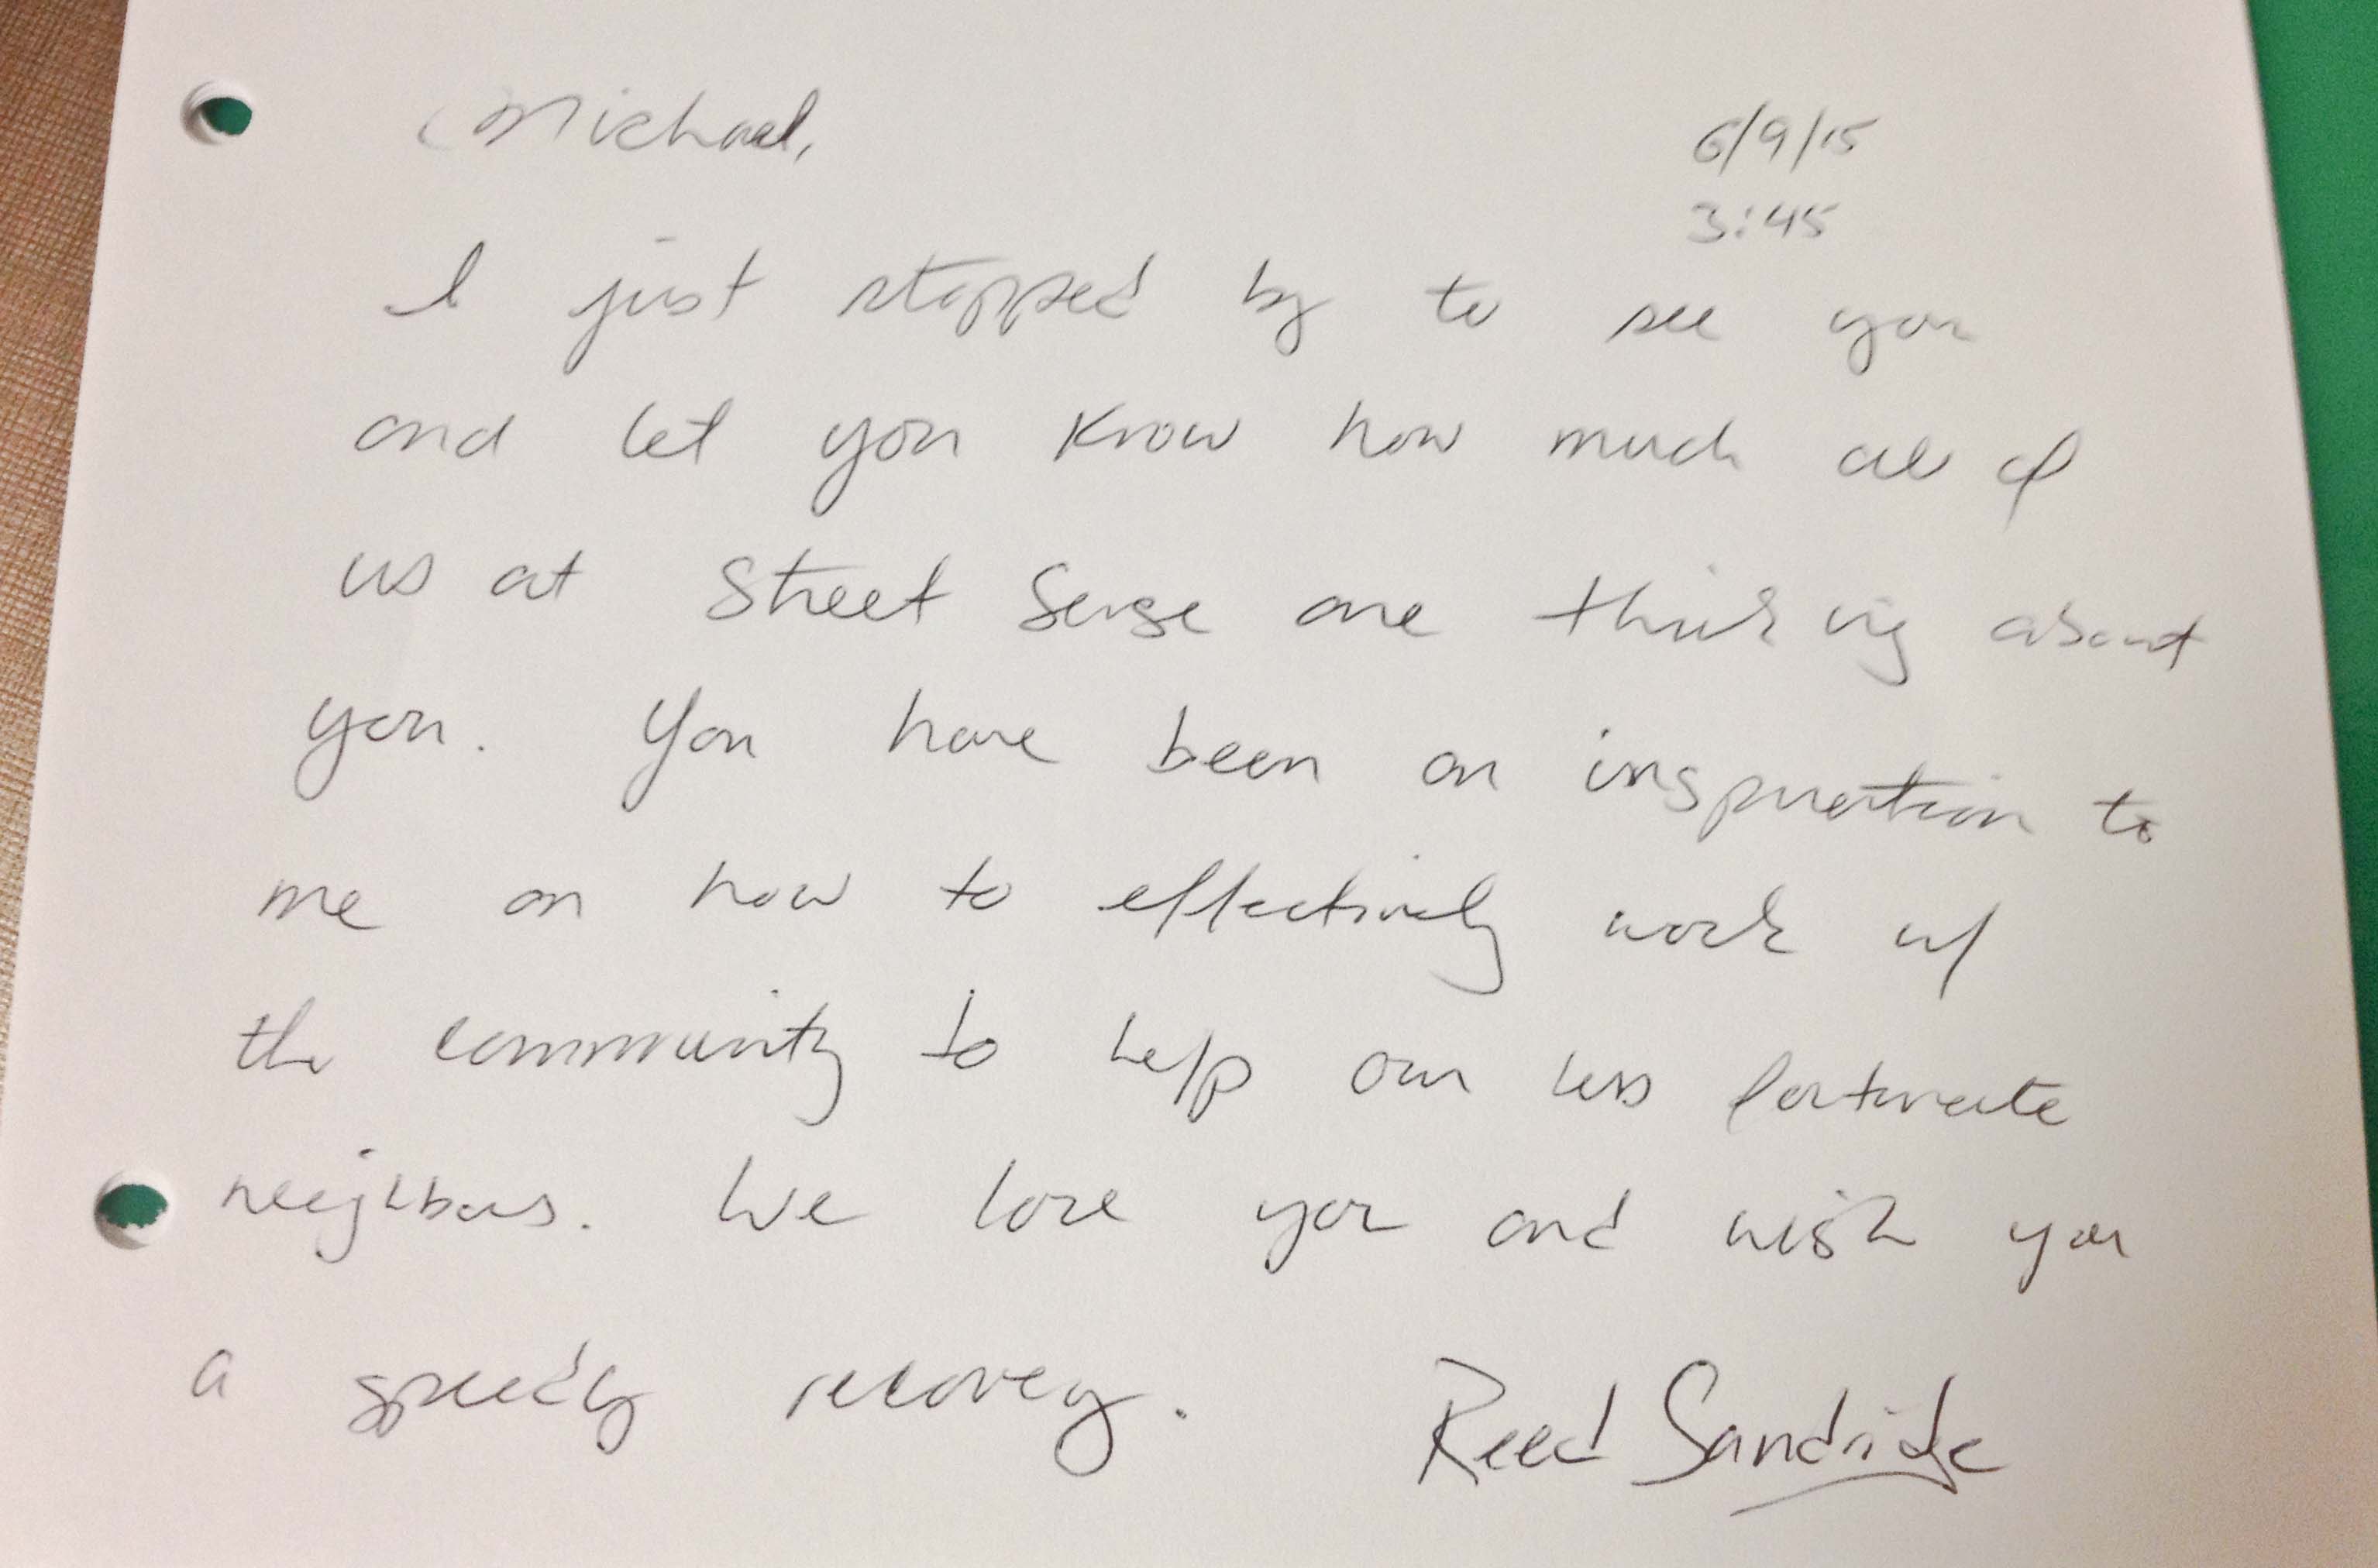 Michael,
6/9/15
3:45
I just stopped by to see you
and let you know how much all of
us at Street Sense are thinking about
you. You have been an inspiration to
me on how to effectively work w/
the community to help our less fortunate
neighbors. We love you and wish you
a speedy recovery.
Reed Sandridge